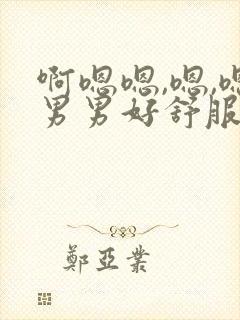 啊嗯嗯,嗯,嗯
男男好舒服
鄭亞業